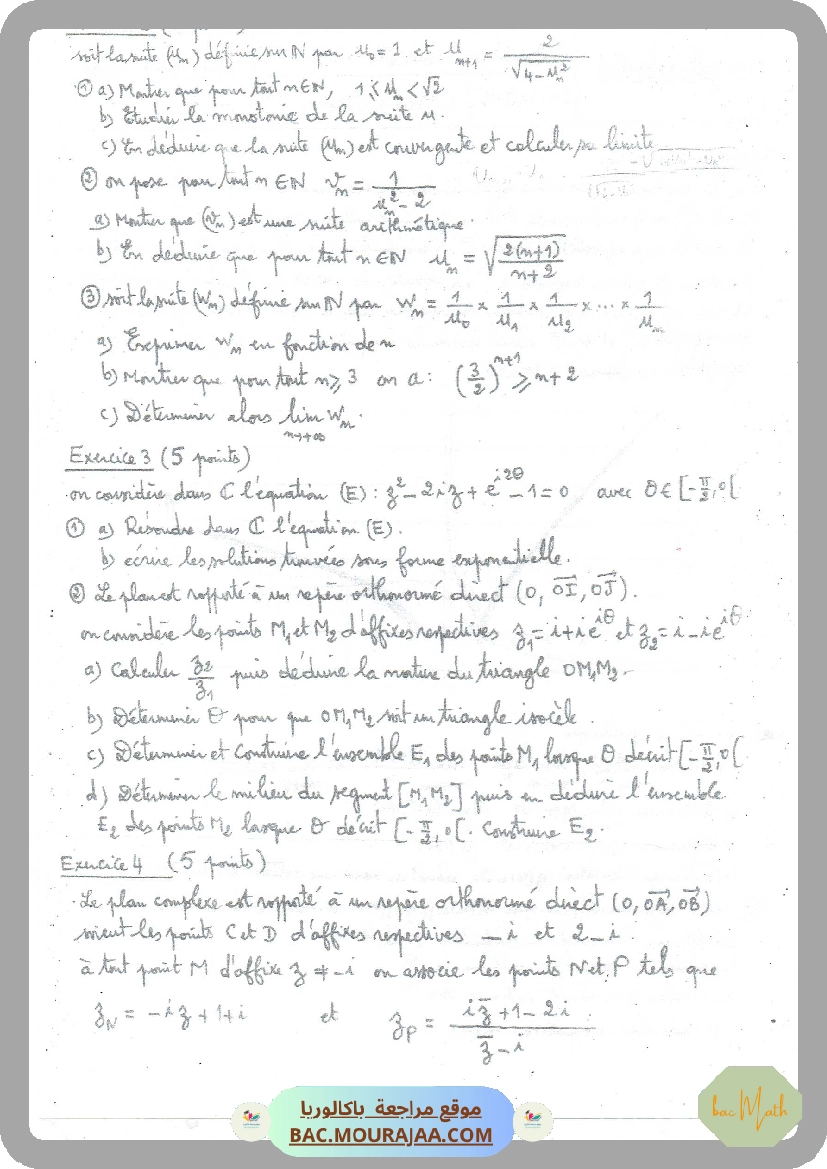 soit la suite (uₙ) définie sur ℕ par u₀ = 1 et uₙ₊₁ = 2/√(4 - uₙ²)
① a) Montrer que pour tout n ∈ ℕ, 1 ⩽ uₙ < √2
b) Etudier la monotonie de la suite u.
c) En déduire que la suite (uₙ) est convergente et calculer sa limite
② on pose pour tout n ∈ ℕ vₙ = 1/(uₙ² - 2)
a) Montrer que (vₙ) est une suite arithmétique.
b) En déduire que pour tout n ∈ ℕ uₙ = √(2(n+1)/(n+2))
③ soit la suite (Wₙ) définie sur ℕ par Wₙ = 1/u₀ × 1/u₁ × 1/u₂ × ... × 1/uₙ
a) Exprimer Wₙ en fonction de n
b) Montrer que pour tout n ⩾ 3 on a : (3/2)ⁿ⁺¹ ⩾ n + 2
c) Déterminer alors lim Wₙ.
n→+∞
Exercice 3 (5 points)
on considère dans ℂ l'équation (E) : z² - 2iz + e^(i2θ) - 1 = 0 avec θ ∈ [-π/2, 0[
① a) Résoudre dans ℂ l'équation (E).
b) écrire les solutions trouvées sous forme exponentielle.
② Le plan est rapporté à un repère orthonormé direct (O, OI, OJ).
on considère les points M₁ et M₂ d'affixes respectives z₁ = i + ie^(iθ) et z₂ = i - ie^(iθ)
a) Calculer z₂/z₁ puis déduire la nature du triangle OM₁M₂.
b) Déterminer θ pour que OM₁M₂ soit un triangle isocèle.
c) Déterminer et Construire l'ensemble E₁ des points M₁ lorsque θ décrit [-π/2, 0[
d) Déterminer le milieu du segment [M₁M₂] puis en déduire l'ensemble
E₂ des points M₂ lorsque θ décrit [-π/2, 0[. Construire E₂.
Exercice 4 (5 points)
Le plan complexe est rapporté à un repère orthonormé direct (O, OA, OB)
soient les points C et D d'affixes respectives -i et 2-i.
à tout point M d'affixe z ≠ -i on associe les points N et P tels que
z_N = -iz + 1 + i et z_P = (iz̄ + 1 - 2i)/(z̄ - i)
موقع مراجعة باكالوريا
BAC.MOURAJAA.COM
bac Math